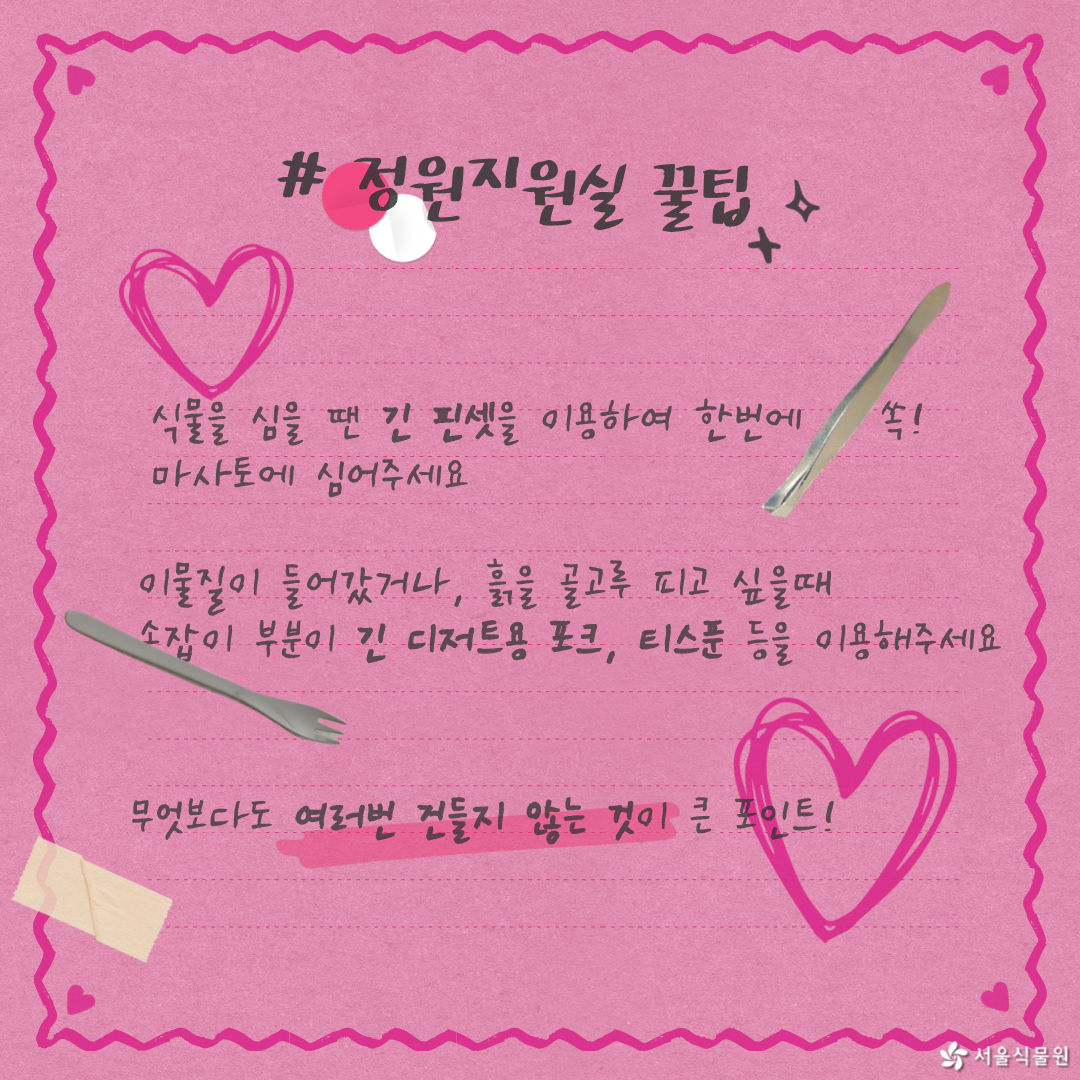 # 정원지원실 꿀팁
식물을 심을 땐 긴 핀셋을 이용하여 한번에 쏙!
마사토에 심어주세요
이물질이 들어갔거나, 흙을 골고루 피고 싶을때
손잡이 부분이 긴 디저트용 포크, 티스푼 등을 이용해주세요
무엇보다도 여러번 건들지 않는 것이 큰 포인트!
서울식물원